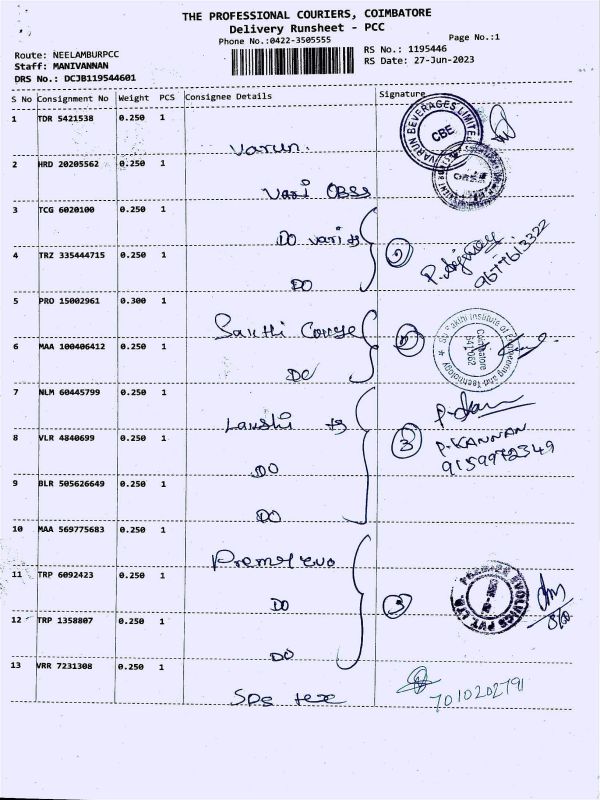 THE PROFESSIONAL COURIERS, COIMBATORE
Delivery Runsheet - PCC
Phone No.:0422-3505555
Page No.:1
Route: NEELAMBURPCC
RS No.: 1195446
Staff: MANIVANNAN
RS Date: 27-Jun-2023
DRS No.: DCJB119544601
S No Consignment No Weight PCS Consignee Details Signature
VARUN BEVERAGES LIMITED
CBE
1 TDR 5421538 0.250 1
Varun.
2 HRD 20205562 0.250 1
3 TCG 6020100 0.250 1
DO
9677613322
4 TRZ 335444715 0.250 1
DO
5 PRO 15002961 0.300 1
Sri Sakthi Institute of Engineering and Technology
Coimbatore
641 062
6 MAA 100406412 0.250 1
DO
7 NLM 60445799 0.250 1
P.KANNAN
9159972349
8 VLR 4840699 0.250 1
DO
9 BLR 505626649 0.250 1
DO
10 MAA 569775683 0.250 1
11 TRP 6092423 0.250 1
DO
PREMIER EVOLVICS PVT. LTD.
3
12 TRP 1358807 0.250 1
DO
13 VRR 7231308 0.250 1
7010202791